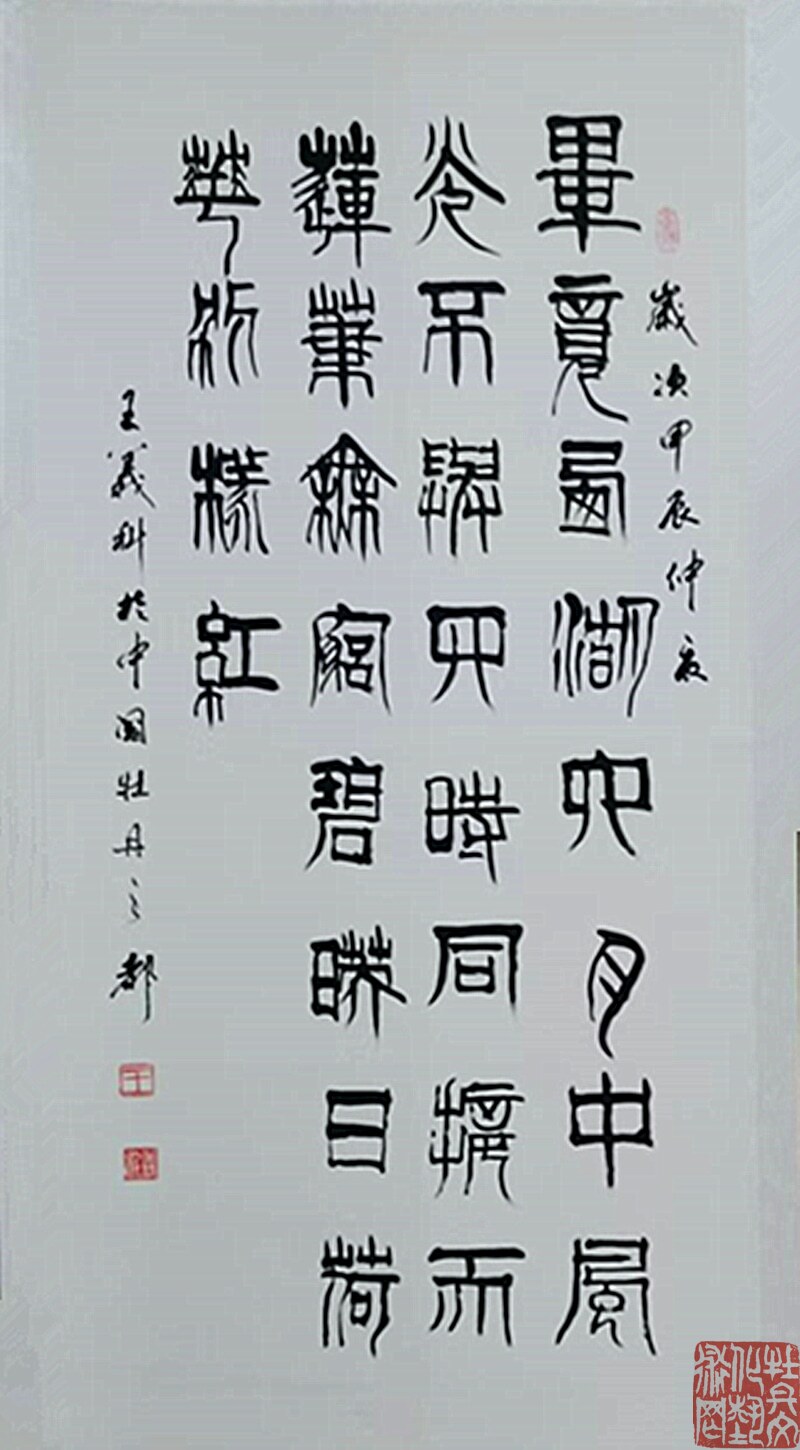 歲次甲辰仲夏
畢竟西湖六月中風
光不與四時同接天
蓮葉無窮碧暎日荷
華別樣紅
王義科於中國牡丹之都
王
牡丹文化藝術网